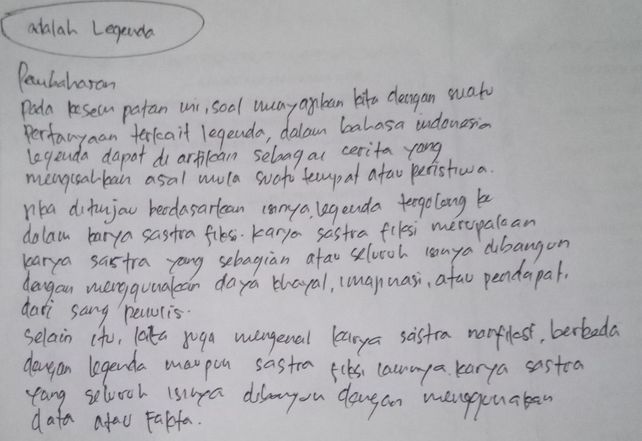 adalah Legenda
Pembahasan
Pada kesempatan ini, soal menyajikan kita dengan suatu
Pertanyaan terkait legenda, dalam bahasa indonesia
legenda dapat di artikan sebagai cerita yang
mengisahkan asal mula suatu tempat atau peristiwa.
jika ditinjau berdasarkan isinya, legenda tergolong ke
dalam karya sastra fiksi. Karya sastra fiksi merupakan
karya sastra yang sebagian atau seluruh isinya dibangun
dengan menggunakan daya khayal, imajinasi, atau pendapat.
dari sang penulis.
Selain itu, kita juga mengenal karya sastra nonfiksi, berbeda
dengan legenda maupun sastra fiksi lainnya. karya sastra
yang seluruh isinya dibangun dengan menggunakan
data atau Fakta.